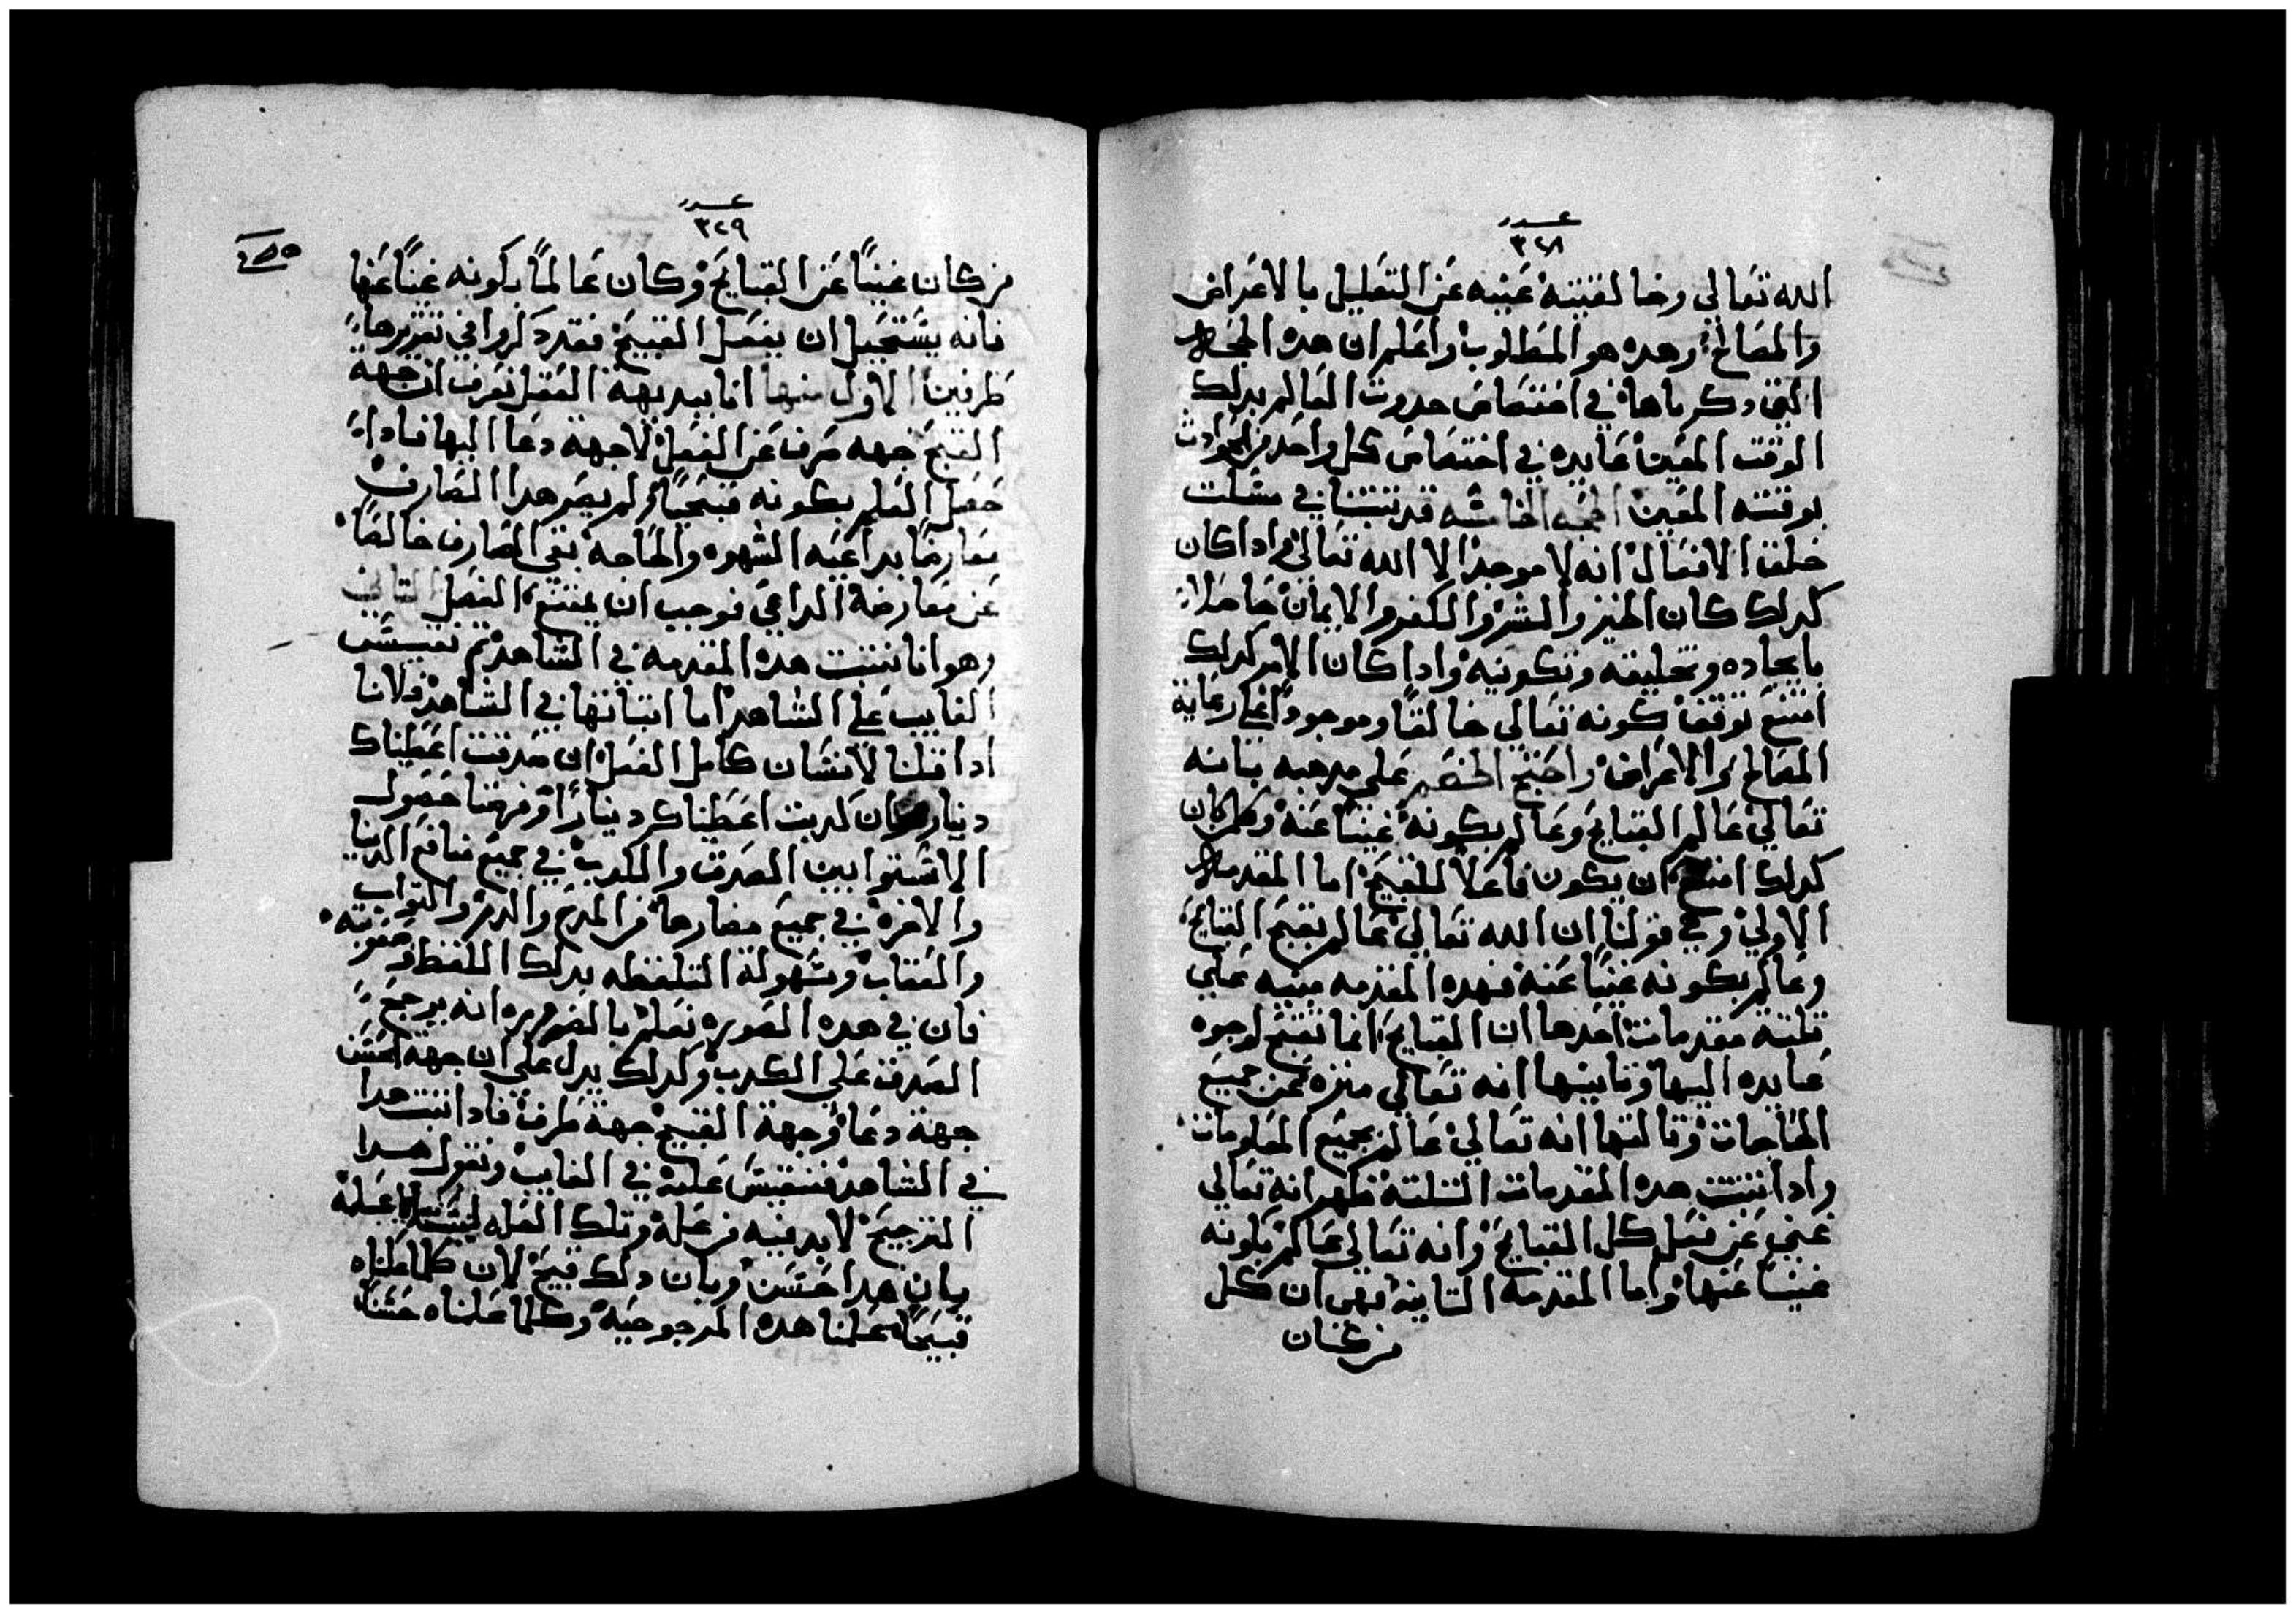 عدد
٣٢٨
الله تعالي وخالقيته غنيه عن التعليل بالاعراض
والمصالح وهده هو المطلوب واعلم ان هده الحجه
التي دكرناها في اختصاص حدوث العالم بدلك
الوقت المعين عايده في اختصاص كل واحد من الحوادث
بوقته المعين الحجه الخامسه قد تبتنا في مسلت
خلق الافعال انه لا موجد الا الله تعالي وادا كان
كدلك كان الخير والشر والكفر والايمان حاصلا
بايجاده وتخليقه وتكوينه وادا كان الامر كدلك
امتنع توقف كونه تعالي خالقا وموجودا علي رعاية
المصالح والاعراض واحتج الخصم علي مدهبه بانه
تعالي عالم القبايح وعالم بكونه غنيا عنه وكلمن كان
كدلك امتنع ان يكون فاعلا للقبيح اما المقدمه
الاولي وهي قولنا ان الله تعالي عالم بقبح القبايح
وعالم بكونه غنيا عنه فهده المقدمه مبنيه علي
تلته مقدمات احدها ان القبايح انما تقبح لوجوه
عايده اليها وتانيها انه تعالي منزه عن جميع
الحاجات وتالتها انه تعالي عالم بجميع المعلومات
وادا تبتت هده المقدمات التلته ظهر انه تعالي
غني عن فعل كل القبايح وانه تعالي عالم بكونه
غنيا عنها واما المقدمه التانيه فهي ان كل
من كان
عدد
٣٢٩
من كان غنيا عن القبايح وكان عالما بكونه غنيا عنها
فانه يستحيل ان يفعل القبيح فقد دكروا في تقريرها
طرقين الاول منها انا ببديهة العقل نعرف ان جهة
القبح جهه صرف عن الفعل لا جهة دعا اليها فادا
حصل العلم بكونه قبيحا ولم يصر هدا الصارف
معارضا بداعيه الشهوه والحاجه بقي الصارف خالصا
عن معارضة الداعي فوجب ان يمتنع الفعل التاني
وهو انا نتبت هده المقدمه في الشاهد تم نقيس
الغايب علي الشاهد اما اتباتها في الشاهد فلانا
ادا قلنا لانسان كامل العقل ان صدقت اعطيناك
دينار وان كدبت اعطيناك دينارا وفرضنا حصول
الاستوا بين الصدق والكدب في جميع منافع الدنيا
والاخره في جميع مضارها من المدح والدم والتواب
والعقاب وسهولة التلفظه بدلك اللفظ وصعوبته
فان في هده الصوره نعلم بالضروره انه يرجح
الصدق علي الكدب وكدلك يدل علي ان جهة الحسن
جهة دعا وجهة القبيح جهة صرف فادا تبت هدا
في الشاهد فنقيس عليه في الغايب ونقول هدا
الترجيح لا بد فيه من علة وتلك العله ليست الا علمه
بان هدا حسن وبان دلك قبيح لان كلما علمناه
قبيحا علمنا هده المرجوحيه وكلما علمناه حسنا